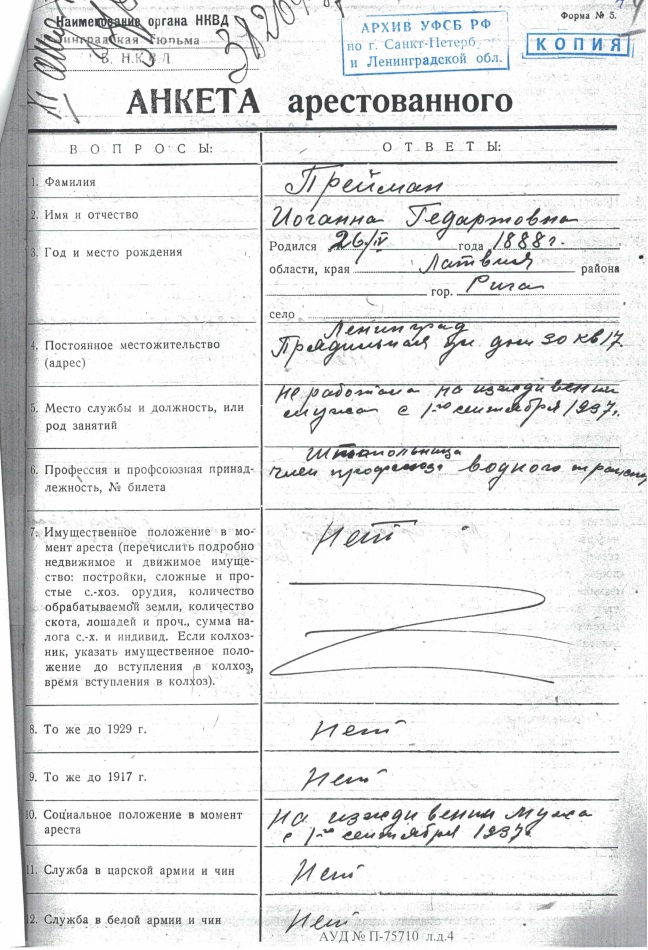 Наименование органа НКВД
Ленинградская Тюрьма
Форма № 5.
АРХИВ УФСБ РФ
по г. Санкт-Петербу
и Ленинградской обл.
КОПИЯ
АНКЕТА арестованного
ВОПРОСЫ:
ОТВЕТЫ:
1. Фамилия
Прейман
2. Имя и отчество
Иоганна Гедартовна
3. Год и место рождения
Родился 26/IV года 1888 г.
области, края Латвия района
гор. Рига
село
4. Постоянное местожительство
(адрес)
Ленинград
Прядильная ул. дом 30 кв 17
5. Место службы и должность, или
род занятий
не работала на иждивении
мужа с 1го сентября 1937 г.
6. Профессия и профсоюзная принад-
лежность, № билета
Штопольница
член профсоюза водного
7. Имущественное положение в мо-
мент ареста (перечислить подробно
недвижимое и движимое имуще-
ство: постройки, сложные и про-
стые с.-хоз. орудия, количество
обрабатываемой земли, количество
скота, лошадей и проч., сумма на-
лога с.-х. и индивид. Если колхоз-
ник, указать имущественное поло-
жение до вступления в колхоз,
время вступления в колхоз).
Нет
8. То же до 1929 г.
Нет
9. То же до 1917 г.
Нет
10. Социальное положение в момент
ареста
На иждевении мужа
с 1го сентября 1937г
11. Служба в царской армии и чин
Нет
12. Служба в белой армии и чин
Нет
АУД № П-75710 л.д.4